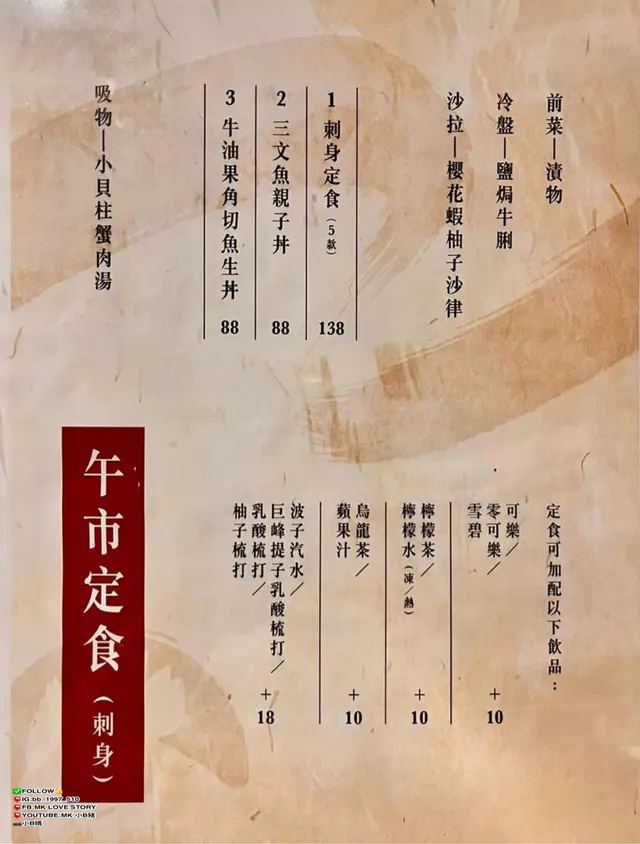 前菜—漬物
冷盤—鹽焗牛脷
沙拉—櫻花蝦柚子沙律
1 刺身定食(5款) 138
2 三文魚親子丼 88
3 牛油果角切魚生丼 88
吸物—小貝柱蟹肉湯
定食可加配以下飲品:
可樂/
零可樂/
雪碧
+10
檸檬茶/
檸檬水(凍/熱)
+10
烏龍茶/
蘋果汁
+10
波子汽水/
巨峰提子乳酸梳打/
乳酸梳打/
柚子梳打
+18
午市定食(刺身)
✅FOLLOW👍
IG:bb_1997_510
FB:MK LOVE STORY
YOUTUBE:MK 小B豬
小B媽